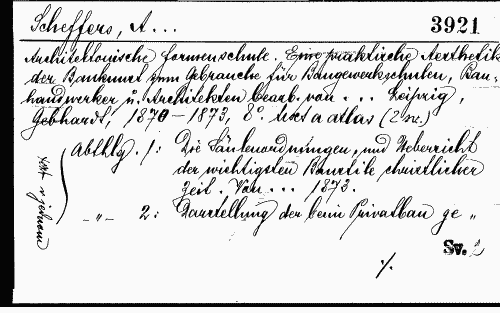 Scheffers, A...
3921
Architektonische Formenschule. Eine praktische Aesthetik
der Baukunst zum Gebrauche für Baugewerkschulen, Bau-
handwerker u. Architekten bearb. von ... Leipzig,
Gebhardt, 1870-1873, 8° text a atlas (2 sv.)
Abthlg. 1: Die Säulenordnungen, und Uebersicht
der wichtigsten Baustile christlicher
Zeit. Von ... 1873.
-„- 2: Darstellung der beim Privatbau ge„
Sv. 2
./.